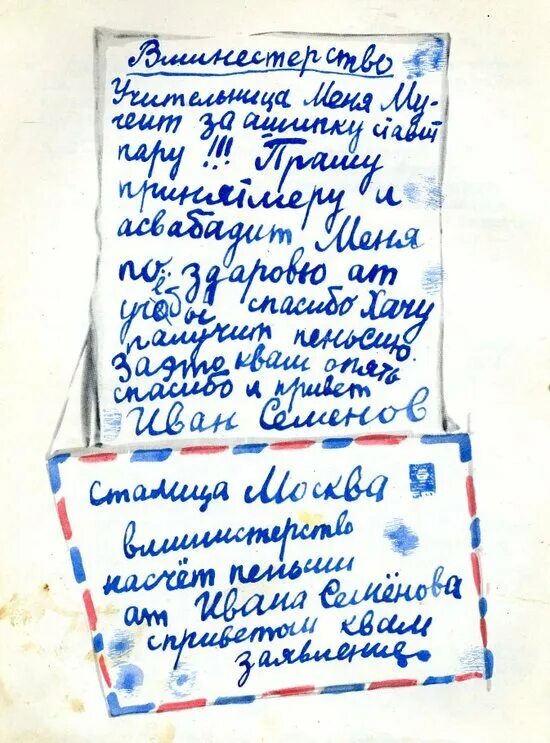 Вминестерство
Учительница Меня Му-
чеит за ашипку ставит
пару !!! Прашу
принятмеру и
асвабадит Меня
по здаровю ат
учёбы спасибо Хачу
палучит пеньсию
Заэто квам опять
спасибо и привет
Иван Семенов
сталица Москва
вминистерство
насчёт пеньсии
ат Ивана Семёнова
сприветом квам
заявление.